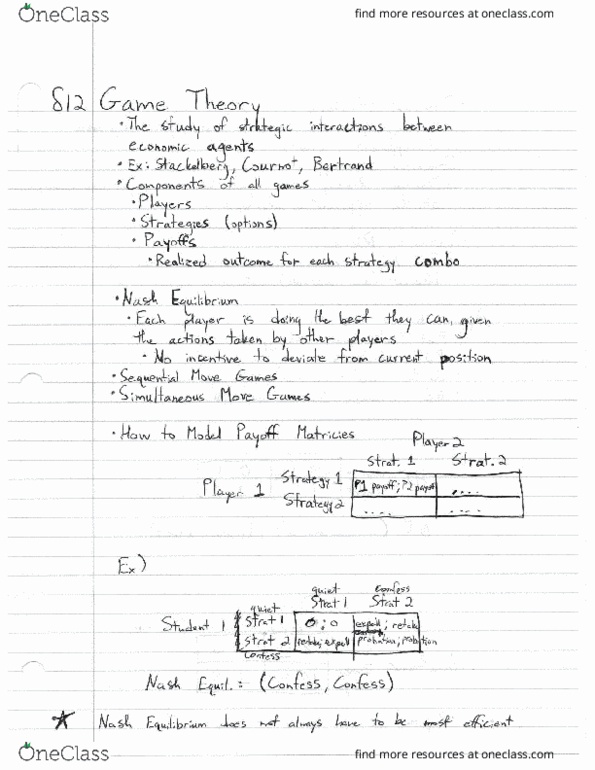 OneClass
find more resources at oneclass.com
§12 Game Theory
• The study of strategic interactions between
economic agents
• Ex: Stackelberg, Cournot, Bertrand
• Components of all games
• Players
• Strategies (options)
• Payoffs
• Realized outcome for each strategy combo
• Nash Equilibrium
• Each player is doing the best they can, given
the actions taken by other players
• No incentive to deviate from current position
• Sequential Move Games
• Simultaneous Move Games
• How to Model Payoff Matricies
Player 2
Strat. 1 Strat. 2
Player 1
Strategy 1 P1 payoff; P2 payoff ....
Strategy 2 .... ....
Ex)
quiet confess
Strat 1 Strat 2
Student 1
quiet
Strat 1 0; 0 expell; retake
Strat 2 retake; expell probation; probation
Confess
Nash Equil.: (Confess, Confess)
★ Nash Equilibrium does not always have to be most efficient
OneClass
find more resources at oneclass.com